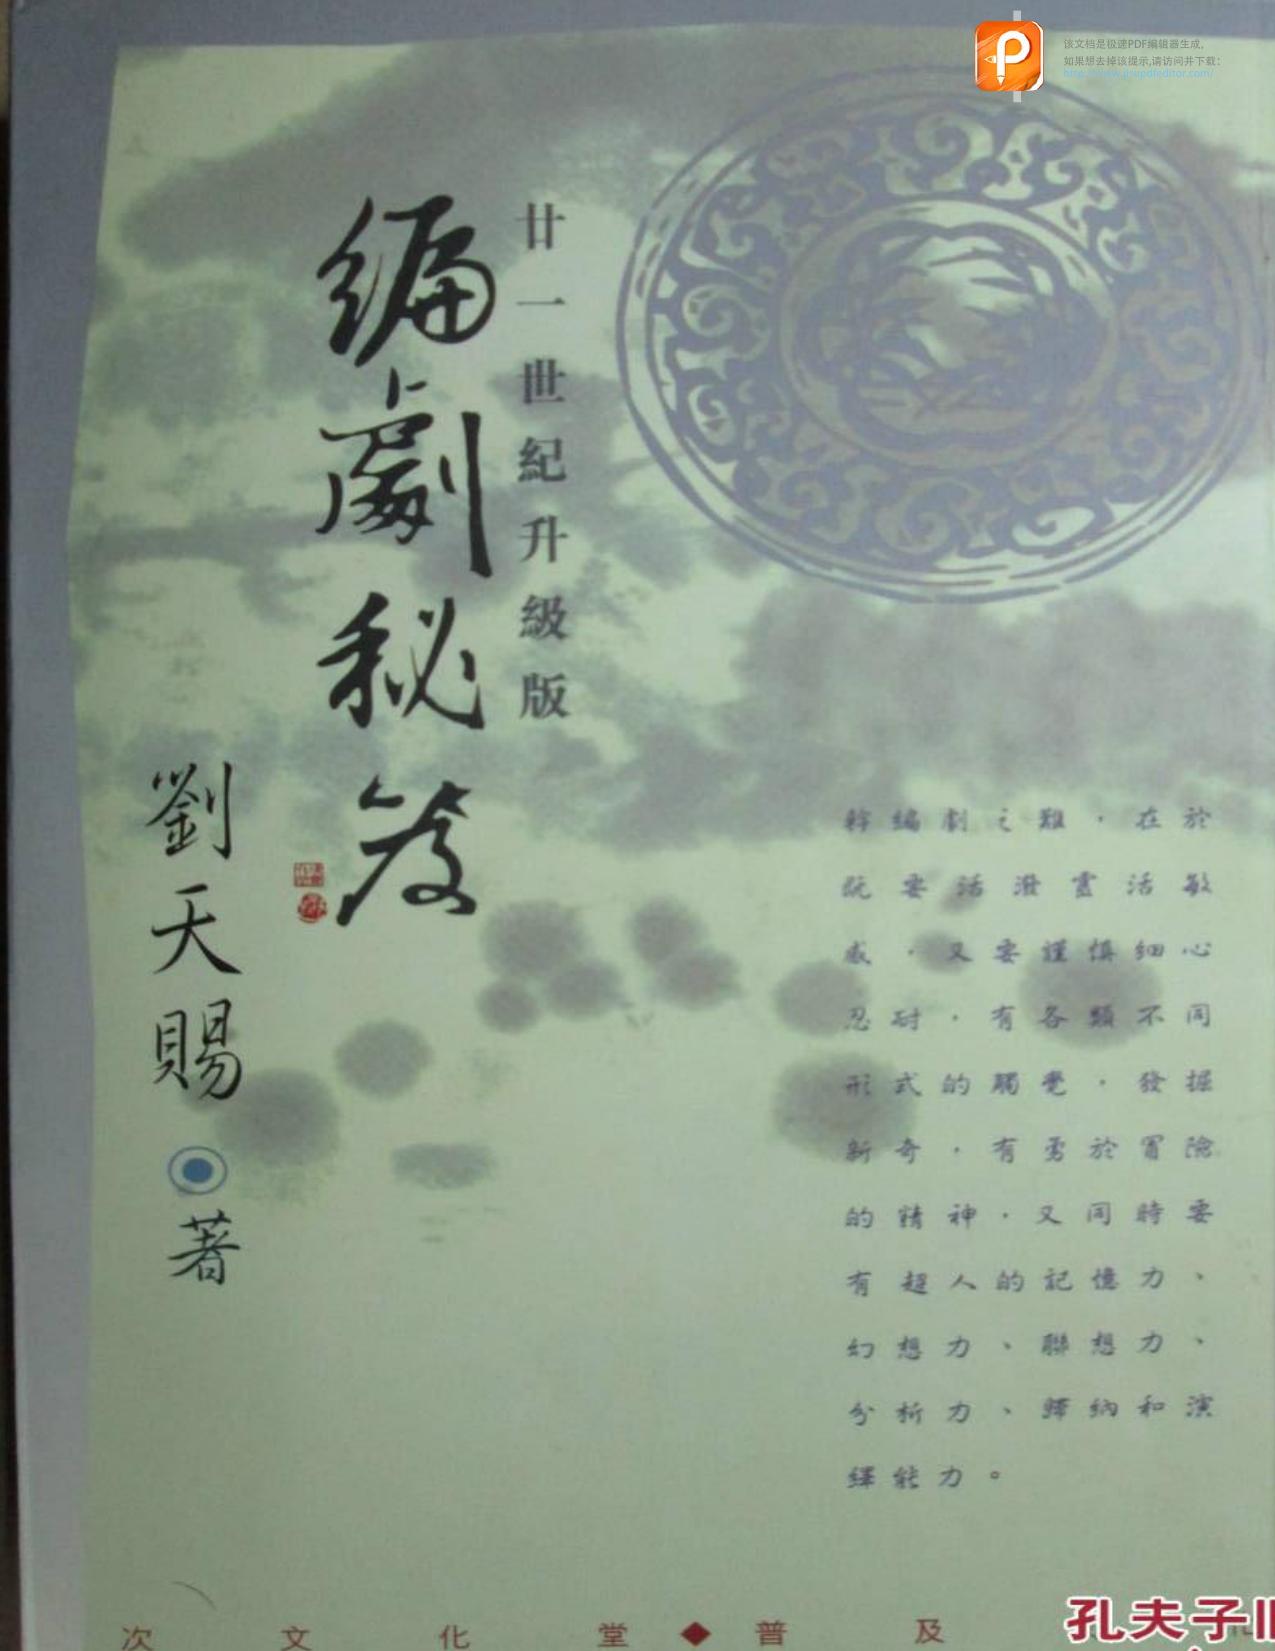 该文档是极速PDF编辑器生成,
如果想去掉该提示,请访问并下载：
http://www.jisupdfeditor.com/
廿一世紀升級版
編劇秘笈
劉天賜
著
幹編劇之難，在於
既要活潑靈活敏
感，又要謹慎細心
忍耐，有各類不同
形式的觸覺，發掘
新奇，有勇於冒險
的精神，又同時要
有超人的記憶力、
幻想力、聯想力、
分析力、歸納和演
繹能力。
次文化堂◆普及
孔夫子旧